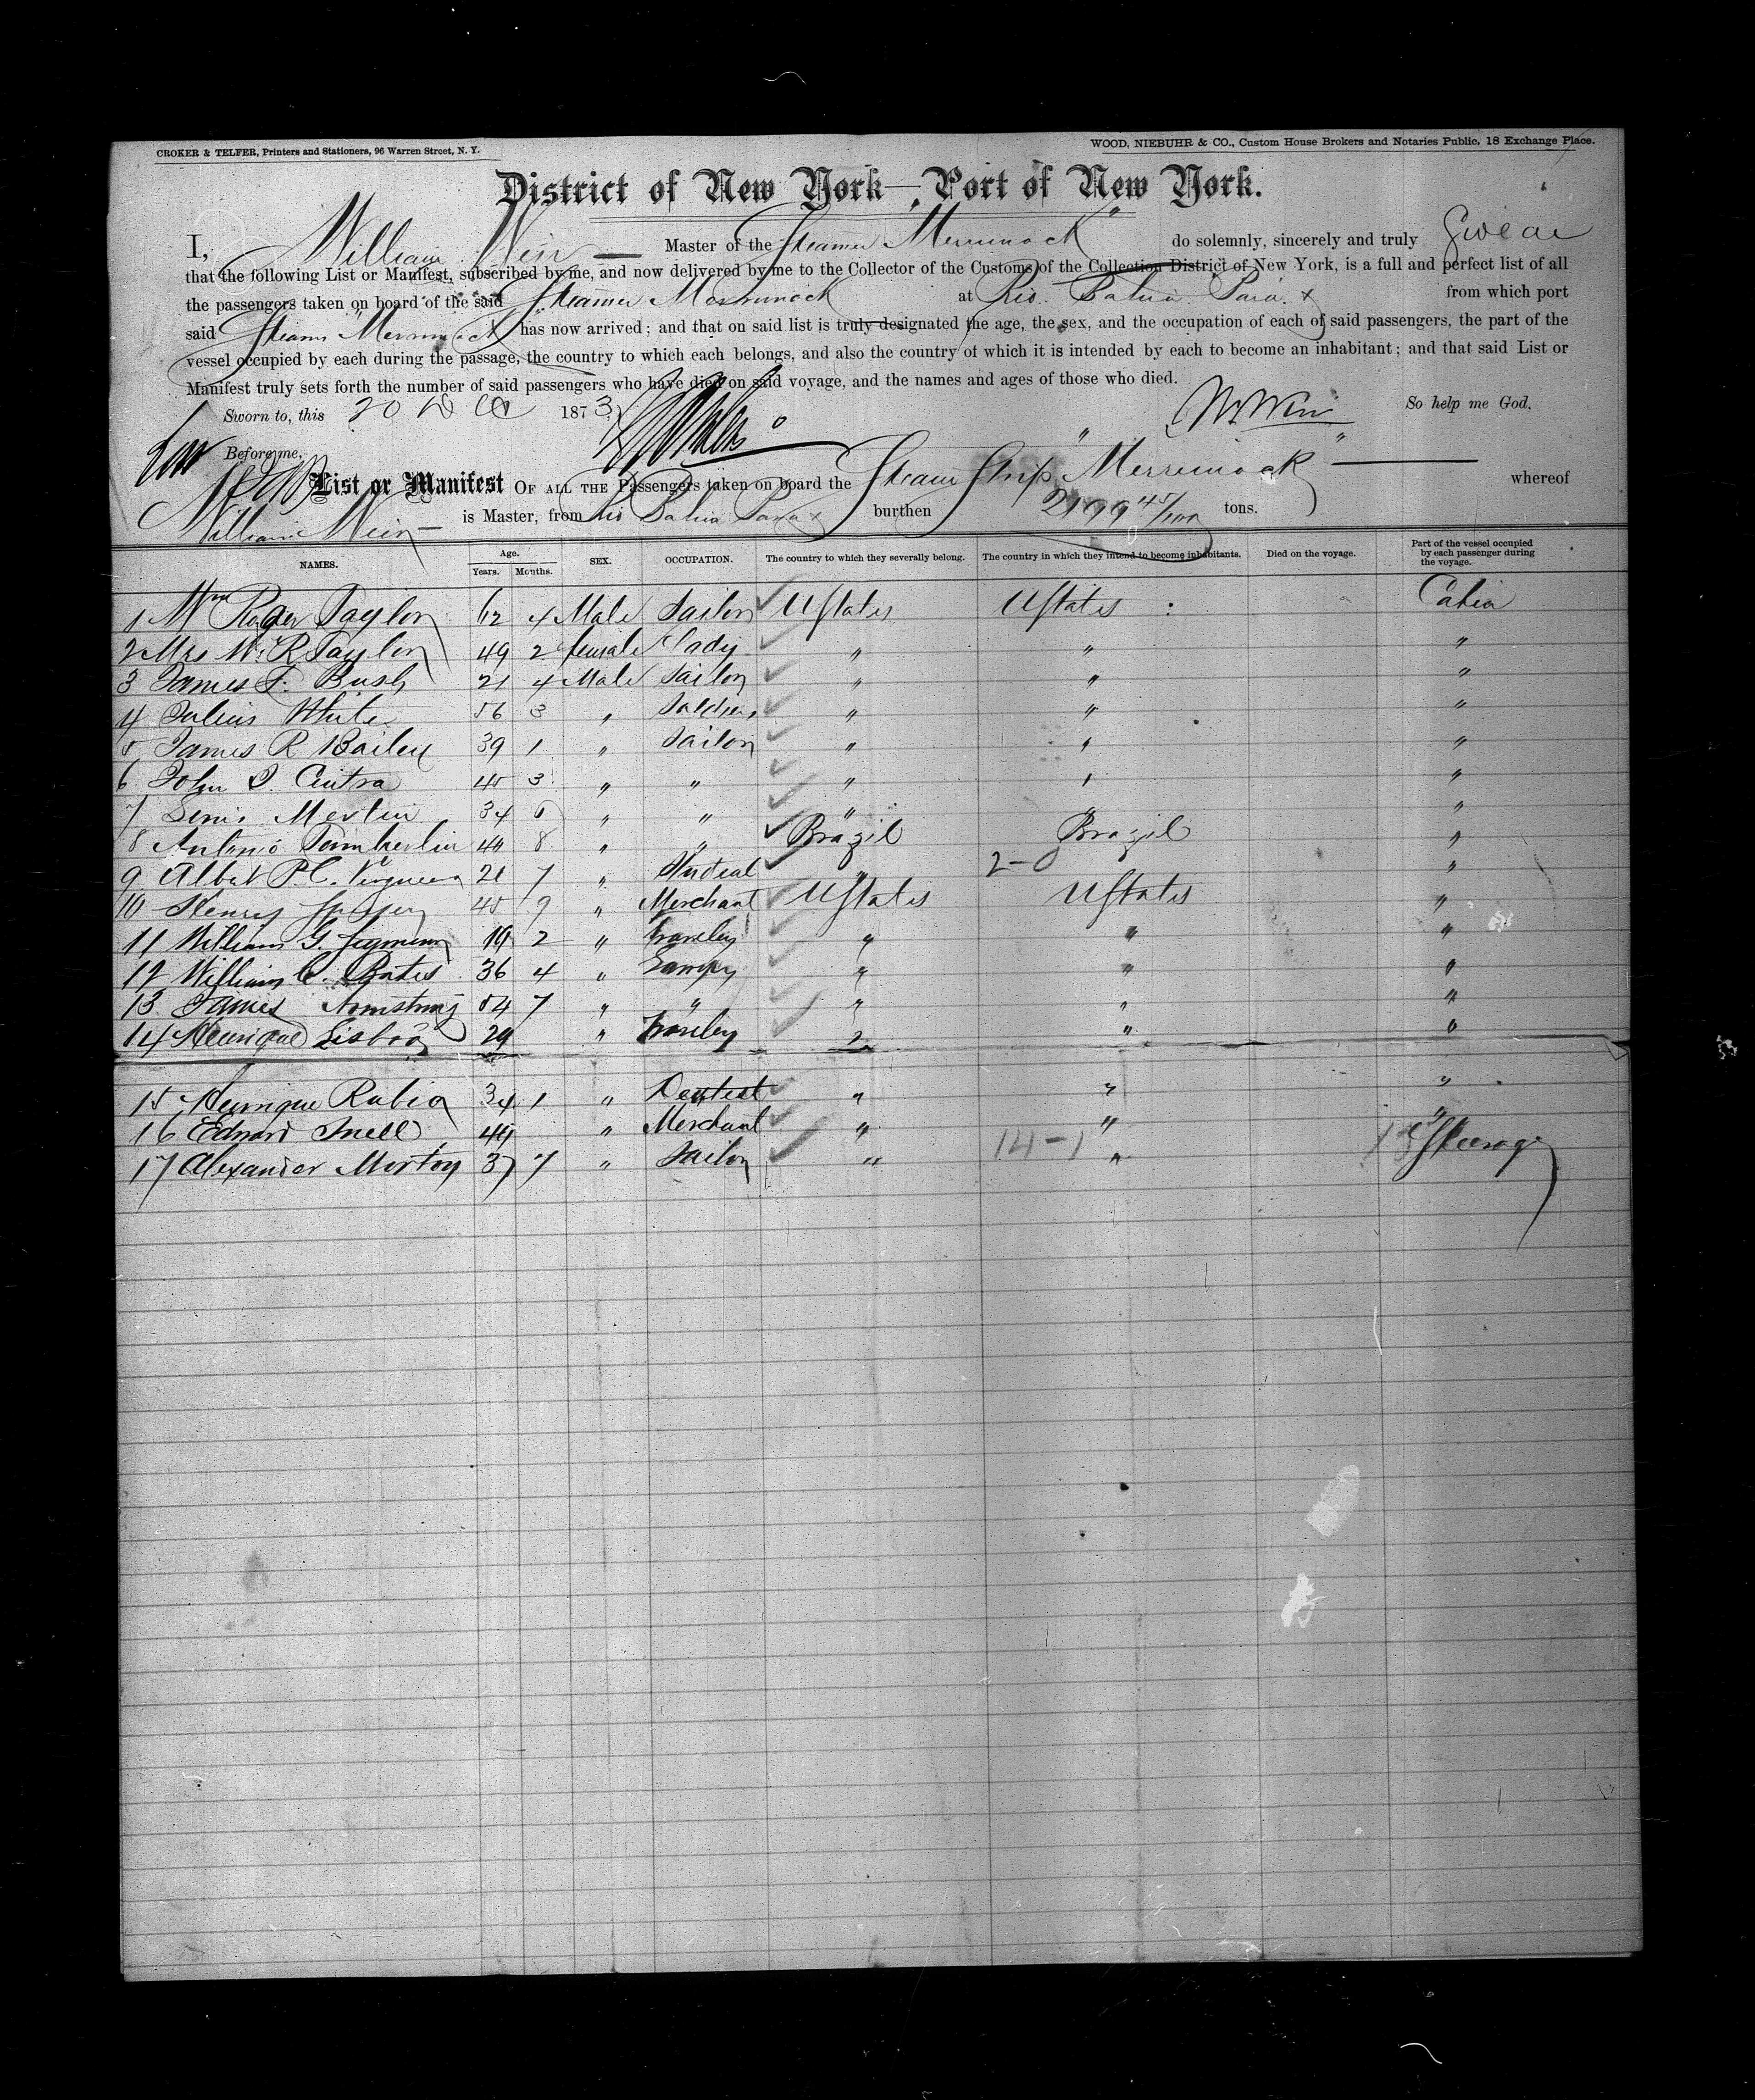 CROKER & TELFER, Printers and Stationers, 96 Warren Street, N. Y.
WOOD, NIEBUHR & CO., Custom House Brokers and Notaries Public, 18 Exchange Place.
District of New York—Port of New York.
I, William Weir — Master of the Steamer Merrimack do solemnly, sincerely and truly Swear
that the following List or Manifest, subscribed by me, and now delivered by me to the Collector of the Customs of the Collection District of New York, is a full and perfect list of all
the passengers taken on board of the said Steamer Merrimack at Rio Bahia Para from which port
said Steamer Merrimack has now arrived; and that on said list is truly designated the age, the sex, and the occupation of each of said passengers, the part of the
vessel occupied by each during the passage, the country to which each belongs, and also the country of which it is intended by each to become an inhabitant; and that said List or
Manifest truly sets forth the number of said passengers who have died on said voyage, and the names and ages of those who died.
Sworn to, this 20 Dec 1873 W Weir So help me God.
Before me,
List or Manifest OF ALL THE Passengers taken on board the Steam Ship "Merrimack" — whereof
William Weir — is Master, from Rio Bahia Para burthen 2199 45/100 tons.
NAMES. Age. Years. Months. SEX. OCCUPATION. The country to which they severally belong. The country in which they intend to become inhabitants. Died on the voyage. Part of the vessel occupied by each passenger during the voyage.
1 Wm Roger Taylor 62 4 Male Sailor UStates UStates Cabin
2 Mrs W. R Taylor 49 2 female Lady " " "
3 James F. Bush 21 4 Male Sailor " " "
4 Julius White 56 3 " Soldier " " "
5 James R Bailey 39 1 " Sailor " " "
6 John Cintra 45 3 " " " " "
7 Merlin 34 6 " " " " "
8 Antonio Tamberlin 44 8 " " Brazil Brazil "
9 Albert P. C. 21 7 " " 2- "
10 Henry 45 9 " Merchant UStates UStates "
11 William G. 19 2 " " " "
12 William C. Bates 36 4 " " " "
13 James Armstrong 54 7 " " " " "
14 Henrique Lisboa 29 " " "
15 Henrique Rabia 34 1 " Dentist " " "
16 Edward Snell 44 " Merchant " " "
17 Alexander Morton 37 7 " Sailor " 14-1 " Steerage